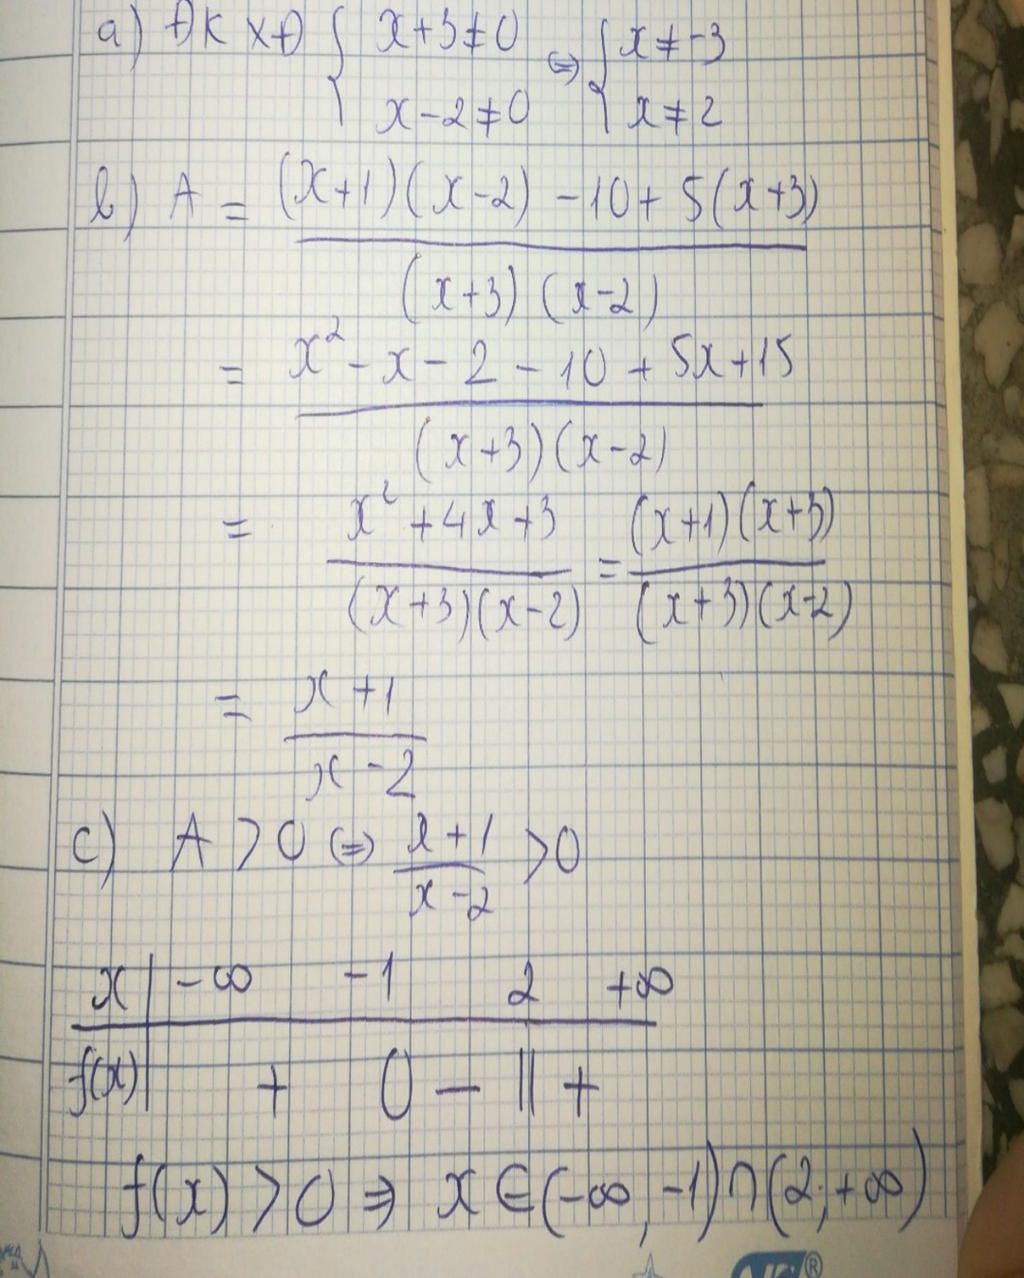 a) ĐK XĐ { x+3≠0 ⇔ { x≠-3
x-2≠0 x≠2
b) A = (x+1)(x-2) -10+ 5(x+3)
(x+3) (x-2)
= x² - x - 2 - 10 + 5x+15
(x+3)(x-2)
= x² +4x+3 = (x+1)(x+3)
(x+3)(x-2) (x+3)(x-2)
= x+1
x-2
c) A > 0 ⇔ x+1 >0
x-2
x | -∞ -1 2 +∞
f(x)| + 0 - || +
f(x) > 0 ⇒ x ∈ (-∞, -1) ∩ (2; +∞)